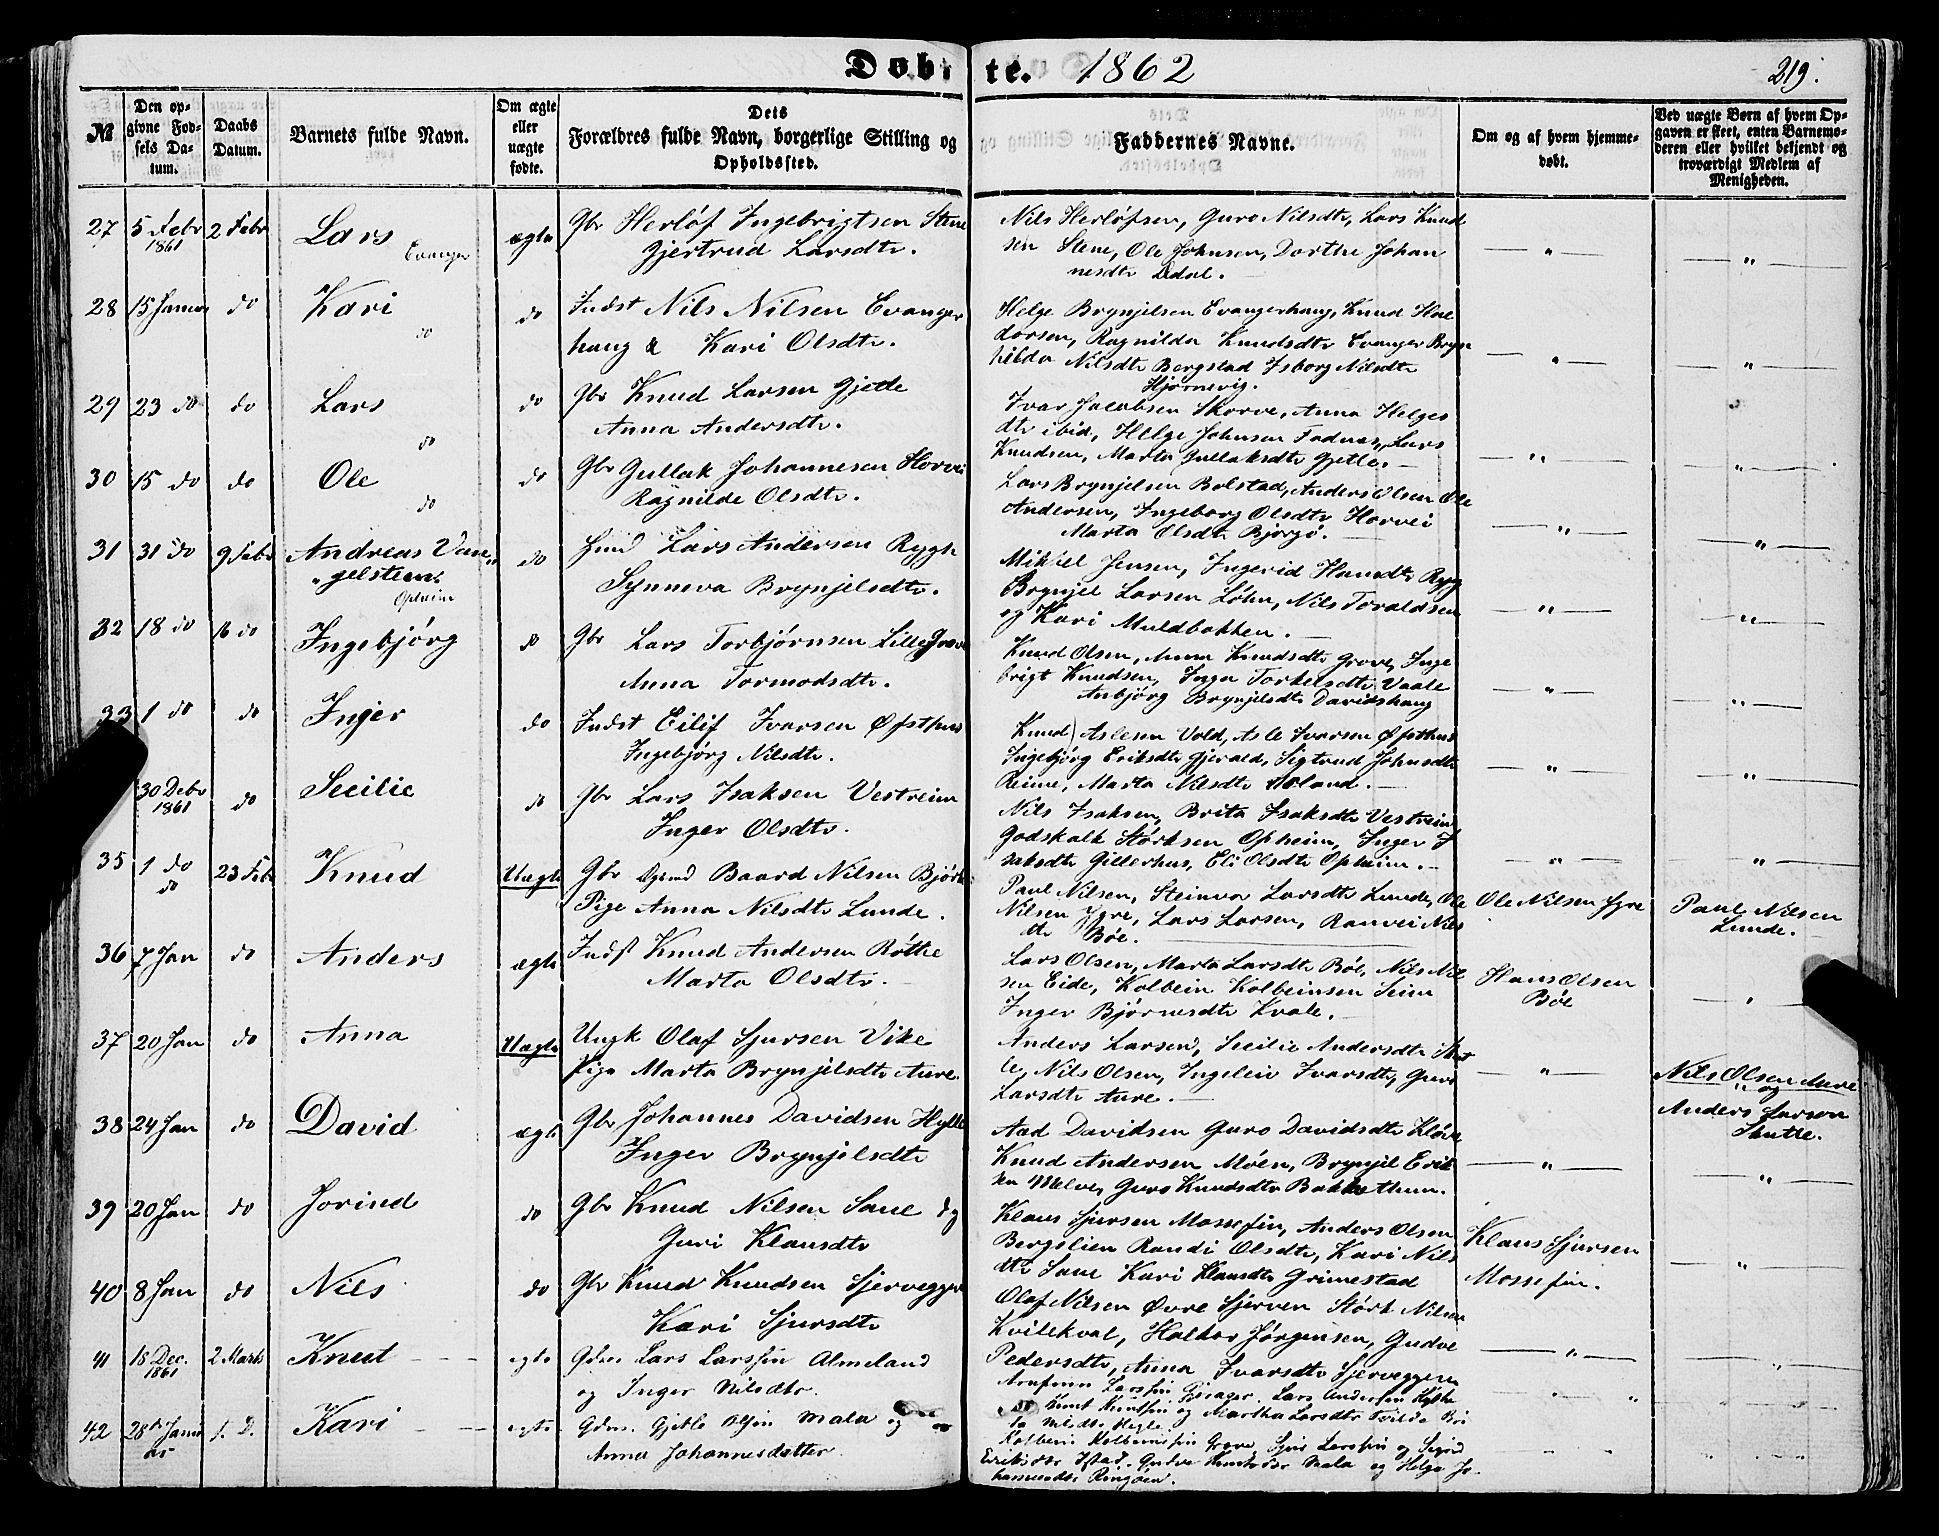 Døbte. 1862
219.
№
Den opgivne Fødsels Datum.
Daabs Datum.
Barnets fulde Navn.
Om ægte eller uægte fødte.
Dets Forældres fulde Navn, borgerlige Stilling og Opholdssted.
Faddernes Navne.
Om og af hvem hjemmedøbt.
Ved uægte Børn af hvem Opgaven er skeet, enten Barnemoderen eller hvilket bekjendt og troværdigt Medlem af Menigheden.
27 5 Febr 1861 2 Febr Lars Evanger ægte Gbr Herlöf Ingebrigtsen Stene
Gjertrud Larsdtr.
Nils Herlöfsen, Guro Nilsdtr, Lars Knud
sen Stene, Ole Johnsen, Dorthe Johan
nesdtr Ddal.
28 15 Januar do Kari do do Indst Nils Nilsen Evanger
haug & Kari Olsdtr.
Helge Brynjelsen Evangerhaug, Knud Hal
dorsen, Ragnilda Knudsdtr Evanger Bryn
hilda Nilsdtr Bergstad Isborg Nilsdtr
Hjørnevig.
29 23 do do Lars do do Gbr Knud Larsen Gjetle
Anna Andersdtr.
Ivar Jacobsen Skorve, Anna Helges
dtr ibid, Helge Johnsen Fadnes, Lars
Knudsen, Marta Gullaksdtr Gjetle.
30 15 do do Ole do do Gbr Gullak Johannesen Horvei
Ragnilde Olsdtr.
Lars Brynjelsen Bolstad, Anders Olsen Ole
Andersen, Ingeborg Olsdtr Horvei
Marta Olsdtr Bjørgo.
31 31 do 9 Febr Andreas Van„
„gelsteen. Opheim do Hmd Lars Andersen Rygh
Synneva Brynjelsdtr.
Mikkel Jensen, Ingerid Hansdtr Ryg
Brynjel Larsen Løhn, Nils Toraldsen
og Kari Muldbakken.
32 18 do 16 do Ingebjörg do Gbr Lars Torbjörnsen Lillegrove
Anna Tormodsdtr.
Knud Olsen, Anna Knudsdtr Grove, Inge
brigt Knudsen, Inga Torkelsdtr Vaale
Anbjörg Brynjelsdtr Davidshaug
33 1 do do Inger do Indst Eilif Ivarsen Øfsthus
Ingebjörg Nilsdtr.
Knud Aslesen Vold, Asle Ivarsen Øfsthus
Ingebjörg Eriksdtr Gjerald, Sigtrud Johnsdtr
Reime, Marta Nilsdtr Aaland.
30 Debr 1861 do Secilie do Gbr Lars Isaksen Vestreim
Inger Olsdtr.
Nils Isaksen, Brita Isaksdtr Vestreim
Godskalk Störksen Opheim, Inger I
saksdtr Gillerhus, Eli Olsdtr Opheim.
35 1 do do 23 Febr Knud Uægte Gbr Baard Nilsen Bjørk
Pige Anna Nilsdtr Lunde.
Paul Nilsen, Steinva Larsdtr Lunde, Ole
Nilsen Ygre, Lars Larsen, Ranvei Nils
dtr Bøe.
Ole Nilsen Ygre
Paul Nilsen
Lunde.
36 7 Jan do Anders ægte Indst Knud Andersen Röthe
Marta Olsdtr.
Lars Olsen, Marta Larsdtr Böe, Nils Nil
sen Eide, Kolbein Kolbeinsen Seim
Inger Bjørnesdtr Kvale.
Hans Olsen
Böe
37 20 Jan do Anna Uægte Ungk Olaf Sjursen Vike
Pige Marta Brynjelsdtr Aure.
Anders Larsen, Secilie Andersdtr Skut
le, Nils Olsen, Ingeleiv Ivarsdtr, Guro
Larsdtr Aure.
Nils Olsen Aure
og
Anders Larsen
Skutle.
38 24 Jan do David ægte Gbr Johannes Davidsen Hylle
Inger Brynjelsdtr
Aad Davidsen Guro Davidsdtr Kløve
Knud Andersen Möen, Brynjel Erik
sen Melve, Guro Knudsdtr Bakkethun.
39 20 Jan do Jorind do Gbr Knud Nilsen Saue og
Guri Klausdtr
Klaus Sjursen Mossefin, Anders Olsen
Bergslien Randi Olsdtr, Kari Nils
dtr Saue Kari Klausdtr Grimestad
Klaus Sjursen
Mossefin.
40 8 Jan do Nils do Gbr Knud Knudsen Sjervegge
Kari Sjursdtr
Olaf Nilsen Øvre Sjerven Störk Nilsen
Kvilekval, Haldor Jörgensen, Gudve
Pedersdtr, Anna Ivarsdtr Sjerveggen
41 18 Dec. 1861 2 Marts Knut egte Gdm. Lars Larssen Almeland
og Inger Nilsdtr.
Larssen Gjerager. Lars Anderssen
Knut Knutsen og Martha Larsdtr Tvilde Bri
ta Nilsdtr
42 28de Januar s. D. Kari egte Gdm. Gjetle Olsen Mala og
Anna Johannesdatter.
Kolbein Kolbeinsen Grove, Sjur Larssen og Sigrid
Eriksdtr Istad. Gudve Knutsdtr Mala og Helga Jo
hannesdtr Ringöen.